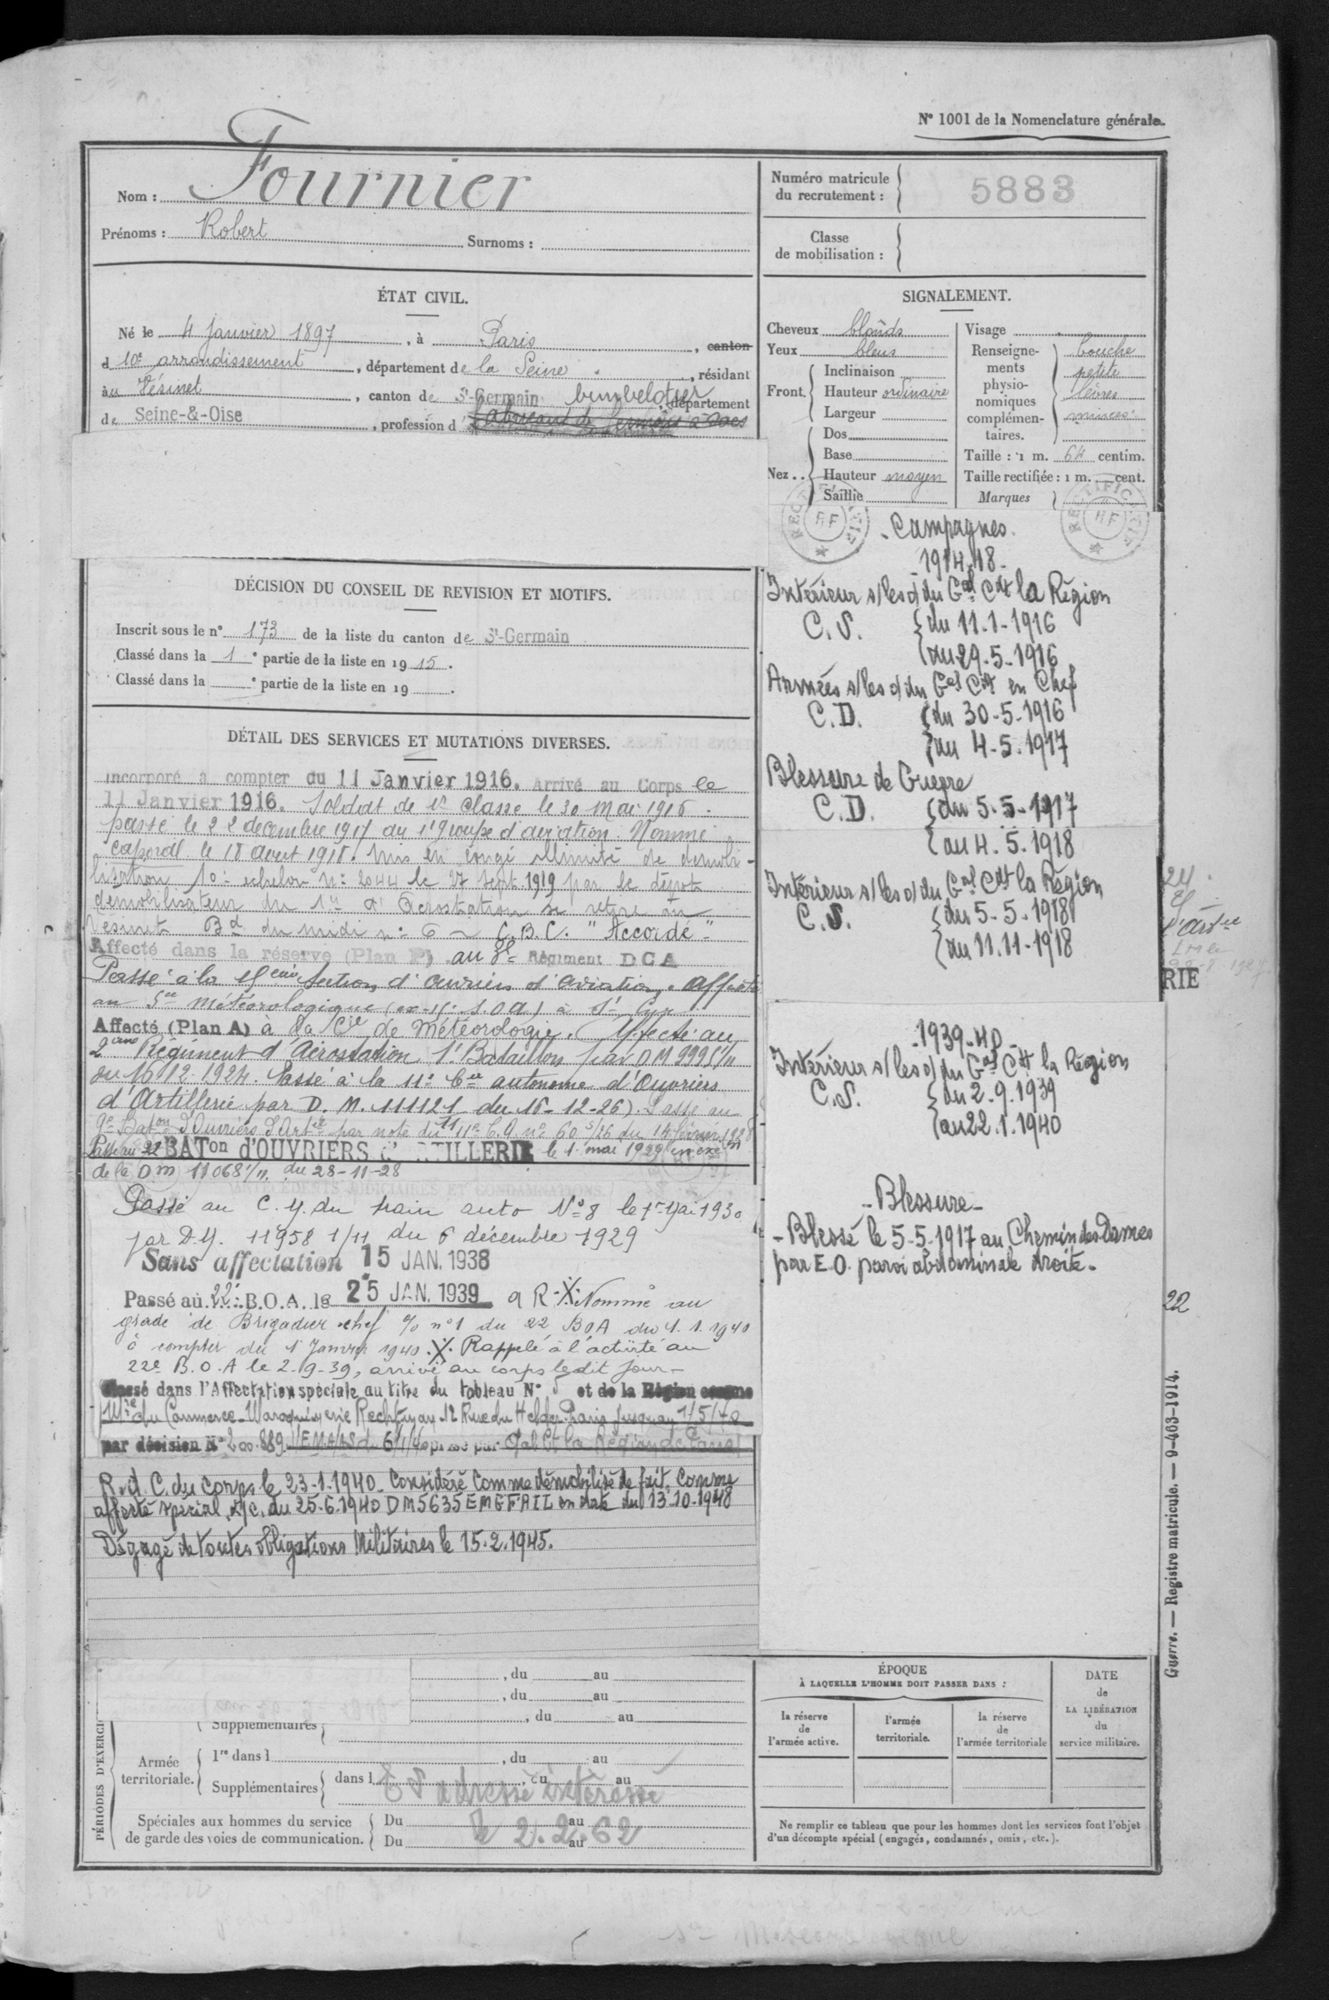 N° 1001 de la Nomenclature générale.
Nom : Fournier
Prénoms : Robert Surnoms :
Numéro matricule du recrutement : 5883
Classe de mobilisation :
ÉTAT CIVIL.
Né le 4 Janvier 1897, à Paris, canton
d 10e arrondissement, département de la Seine, résidant
au Vésinet, canton de St-Germain bimbelotier département
de Seine-&-Oise, profession d'
SIGNALEMENT.
Cheveux blonds
Yeux bleus
Front. Inclinaison
Hauteur ordinaire
Largeur
Nez .. Dos
Base
Hauteur moyen
Saillie
Visage
Renseignements physionomiques complémentaires. bouche
petite
lèvres
minces
Taille : 1 m. 64 centim.
Taille rectifiée : 1 m. cent.
Marques
DÉCISION DU CONSEIL DE REVISION ET MOTIFS.
Inscrit sous le n° 173 de la liste du canton de St-Germain
Classé dans la 1e partie de la liste en 1915.
Classé dans la e partie de la liste en 19 .
DÉTAIL DES SERVICES ET MUTATIONS DIVERSES.
Incorporé à compter du 11 Janvier 1916. Arrivé au Corps le
11 Janvier 1916. Soldat de 1e classe le 30 Mai 1916.
passé le 22 décembre 1917 au 1er Groupe d'aviation. Nommé
caporal le 18 aout 1918. Mis en congé illimité de démobi-
lisation 10e échelon n° 2044 le 27 sept. 1919 par le dépot
démobilisateur du 1er d'Aérostation se retire au
Vésinet Bd du midi n° 6 C.B.C. "Accordé"
Affecté dans la réserve (Plan P) au Régiment DCA
Passé à la Section d'ouvriers d'aviation. Affecté
au Sce météorologique à St Cyr
Affecté (Plan A) à la Cie de Météorologie. Affecté au
2ème Régiment d'Aérostation 1er Bataillon par DM 9995/11
du 10.12.1924. Passé à la 11e Cie autonome d'Ouvriers
d'Artillerie par D. M. 11112-1 du 16-12-26). Passé au
9e Baton d'Ouvriers d'Artie par note du 11e C.A n° 60 5/26 du 14 février 1928
Passé au 22 BATon d'OUVRIERS d'ARTILLERIE le 1er mai 1929 en exon
de la Dm 11068 1/11. du 28-11-28
Passé au C.M. du train auto N° 8 le 1er Mai 1930
par D.M. 11958 1/11 du 6 décembre 1929
Sans affectation 15 JAN. 1938
Passé au 22e B.O.A. le 25 JAN. 1939 a R. X. Nommé au
grade de Brigadier chef % n° 1 du 22 BOA du 1.1.1940
à compter du 1er Janvier 1940. X. Rappelé à l'activité au
22e B.O.A le 2.9.39, arrivé au corps le dit jour.
Classé dans l'Affectation spéciale au titre du tableau N° 5 et de la Région
Mre du Commerce Maroquinerie 12 Rue du Helder Paris Jusqu'au 1/5/40
par décision N° 200.889
R.d.C. du corps le 23-1-1940. Considéré Comme démobilisé de fait. Comme
affecté spécial, A/c. du 25-6-1940 DM 5635 EMGFAIL en date du 13-10-1948
Dégagé de toutes obligations Militaires le 15-2-1945.
- Campagnes.
- 1914-18 -
Intérieur s/les o/ du Gal Cdt la Région
C.S. du 11-1-1916
au 29-5-1916
Armées s/les o/ du Gal Cdt en Chef
C.D. du 30-5-1916
au 4-5-1917
Blessure de Guerre
C.D. du 5-5-1917
au 4.5.1918
Intérieur s/les o/ du Gal Cdt la Région
C.S. du 5-5-1918
au 11.11-1918
- 1939-40 -
Intérieur s/les o/ du Gal Cdt la Région
C.S. du 2.9.1939
au 22.1.1940
- Blessure -
- Blessé le 5-5-1917 au Chemin des Dames
par E.O. paroi abdominale droite -
RIE
22
Guerre. — Registre matricule. — 9-403-1914.
, du au
, du au
, du au
PÉRIODES D'EXERCI
Supplémentaires
Armée territoriale. 1re dans l , du au
Supplémentaires dans l , du au
Spéciales aux hommes du service de garde des voies de communication. Du au
Du au
ES adressé intéressé
le 2.2.62
ÉPOQUE
À LAQUELLE L'HOMME DOIT PASSER DANS :
la réserve de l'armée active.
l'armée territoriale.
la réserve de l'armée territoriale
DATE de LA LIBÉRATION du service militaire.
Ne remplir ce tableau que pour les hommes dont les services font l'objet
d'un décompte spécial (engagés, condamnés, omis, etc.).